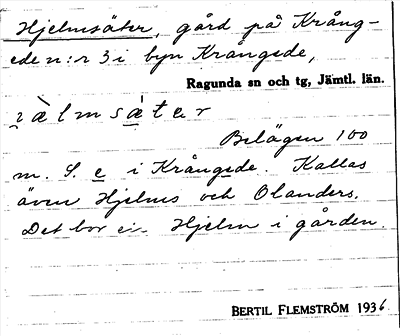 Hjelmsäter, gård på Krång-
ede n:r 3 i byn Krångede,
Ragunda sn och tg, Jämtl. län.
Belägen 100
m. S. e i Krångede. Kallas
även Hjelms och Olanders.
Det bor en Hjelm i gården.
BERTIL FLEMSTRÖM 1936.